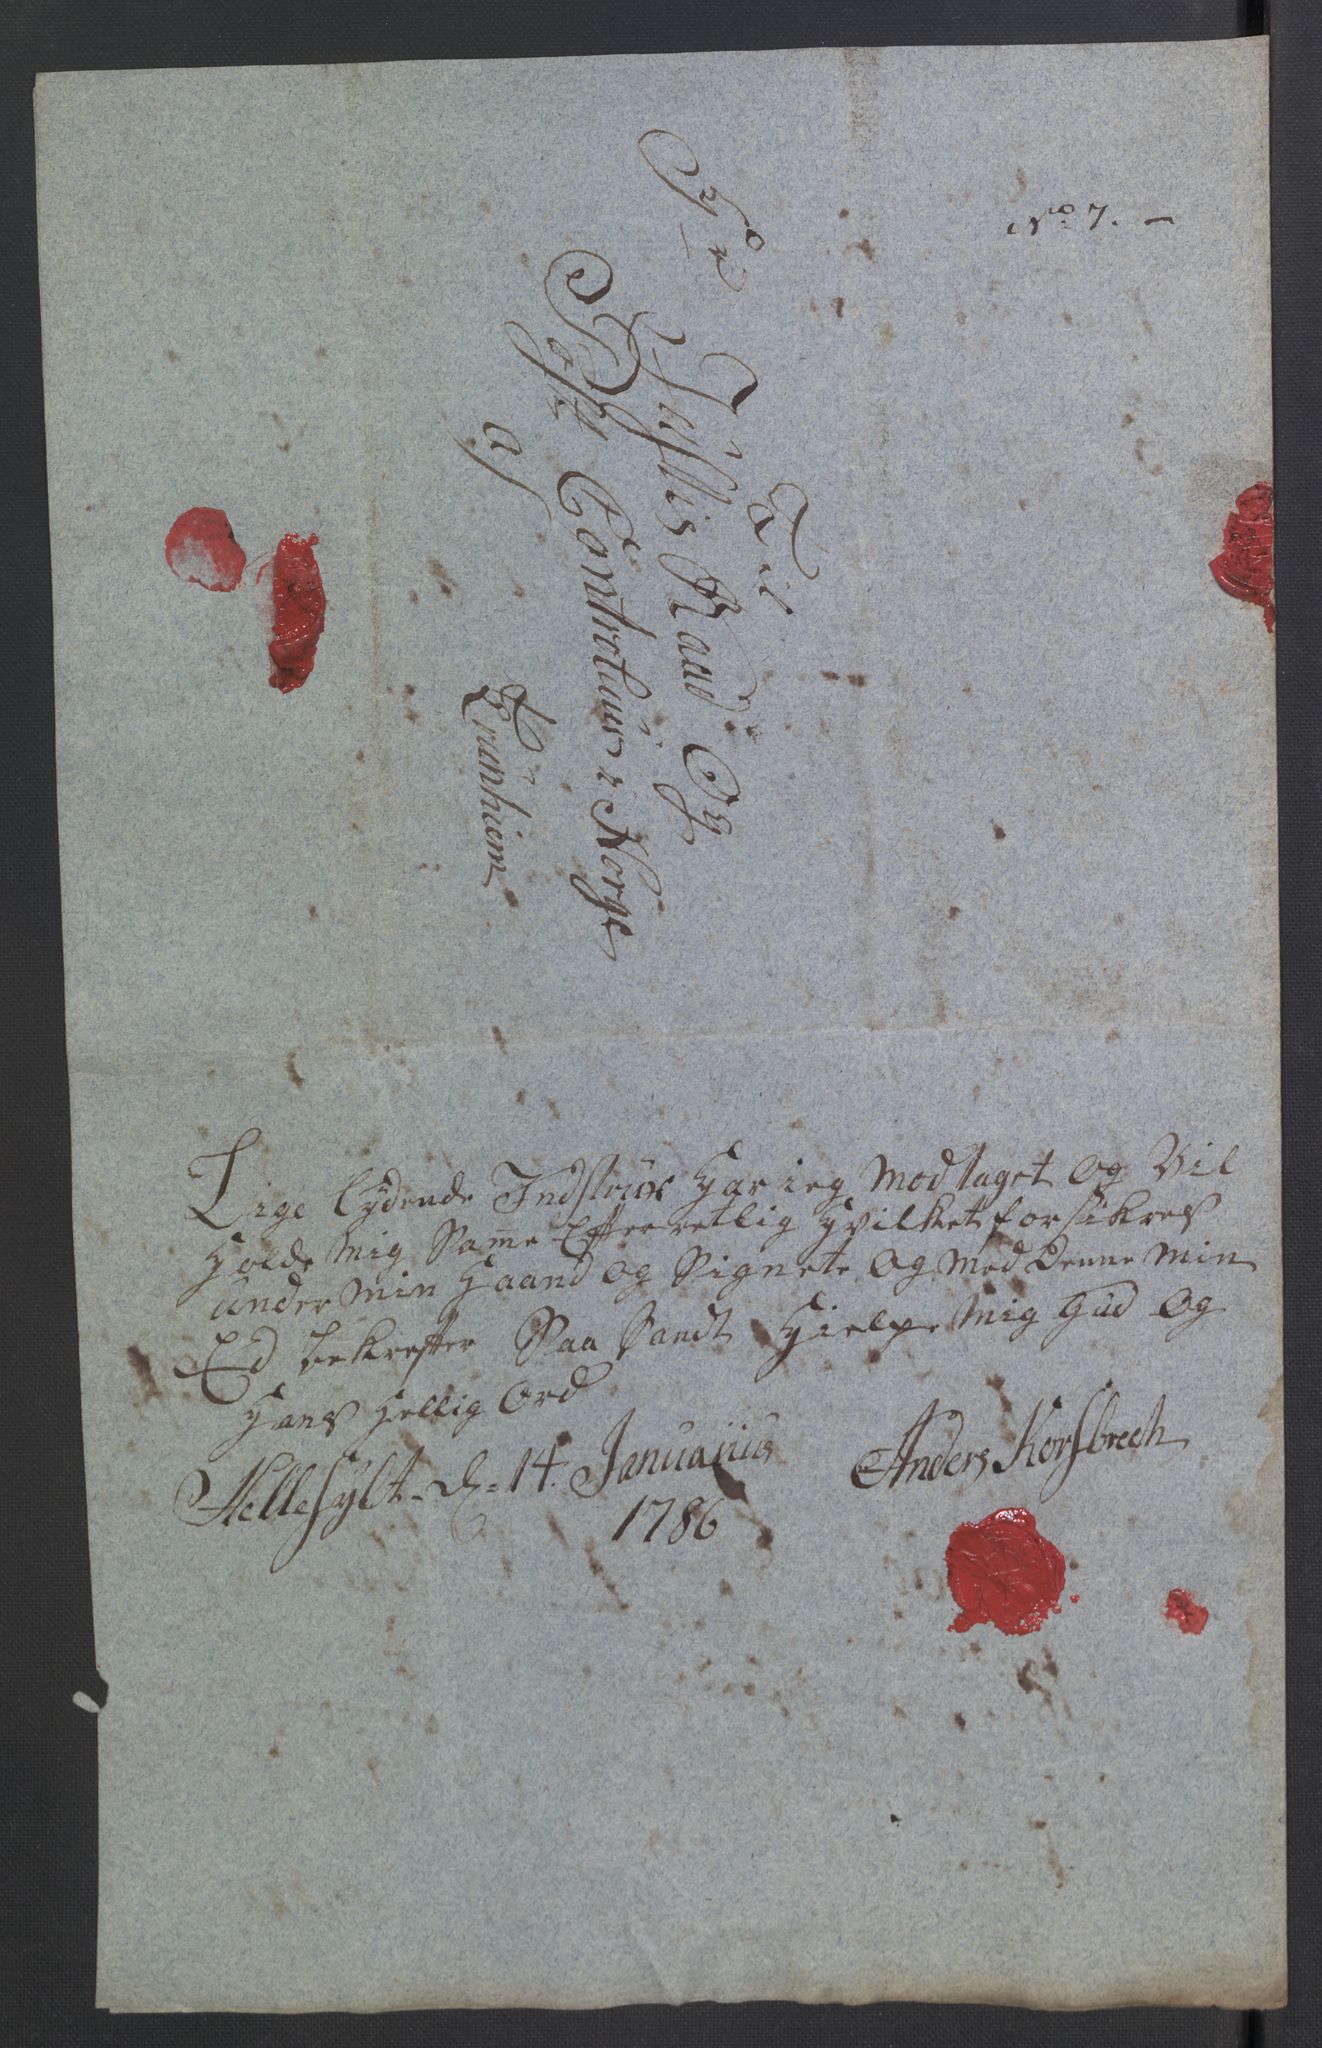 No 7. –
Til
Hr Justis Raad Og
Post Controlleur i Norge
a/ Trunhiem
Lige lydende Instrux Har ieg Modtaget Og Vil
Holde Mig Same Efterretlig Hvilket forsikres
under Min Haand Og Signete Og Med Denne Min
Ed bekrefter Saa Sandt Hielpe Mig Gud Og
Hans Hellig Ord
HelleSylt d. 14. Januarius Anders Korsbrech
1786